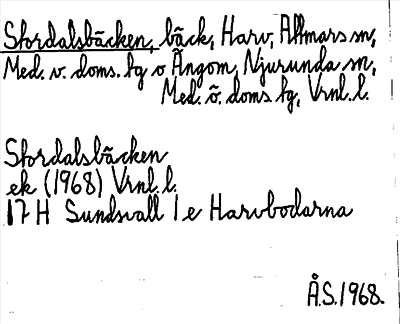 Stordalsbäcken, bäck, Harv, Attmars sn,
Med. v. doms. tg o Ängom, Njurunda sn,
Med. ö. doms. tg, Vrnl. l.
Stordalsbäcken
ek (1968) Vrnl. l.
17 H Sundsvall 1 e Harvbodarna
Å.S. 1968.